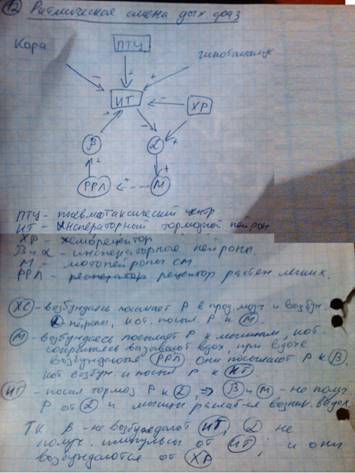 12 Ритмическая смена дых фаз
Кора
ПТЦ
гипоталамус
ИТ
ХР
β
α
РРЛ
М
ПТЦ - пневматаксический центр
ИТ - инспираторный тормозной нейрон
ХР - хеморецептор
β и α - инспираторные нейроны
М - мотонейроны см.
РРЛ - рецептор растяж легких.
ХС - возбуждаясь посылают Р в прод. мозг и возбужд.
α нейроны, кот. посыл Р к М.
М - возбуждаясь посылает Р к мышцам, кот.
сокращаясь вызывают вдох, при вдохе
возбуждаются РРЛ. Они посылают Р к β,
кот возбужд и посыл Р к
ИТ - посыл тормоз Р к α, ⇒ β и М - не получ
Р от α и мышцы расслабл возник выдох.
Т.к. β - не возбуждают ИТ, α не
получ. импульсы от ИТ, и они
возбуждаются от ХР